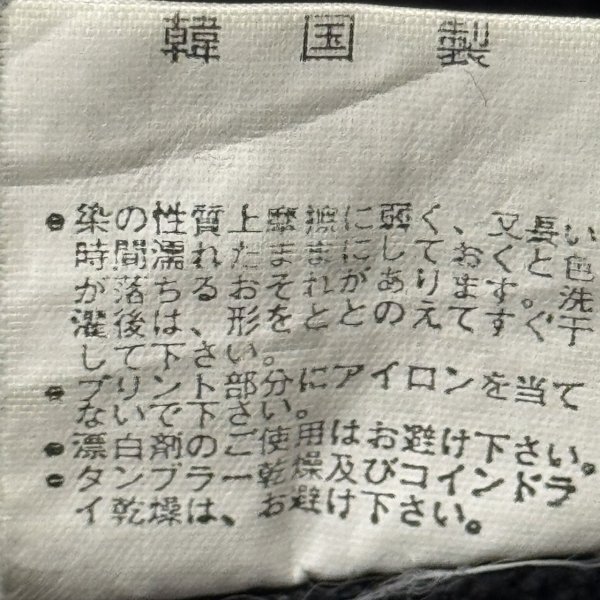 韓国製
●染の性質上摩擦に弱く、又長い
時間濡れたままにしておくと色
が落ちるおそれがあります。洗
濯後は、形をととのえてすぐ干
して下さい。
●プリント部分にアイロンを当て
ないで下さい。
●漂白剤のご使用はお避け下さい。
●タンブラー乾燥及びコインドラ
イ乾燥は、お避け下さい。